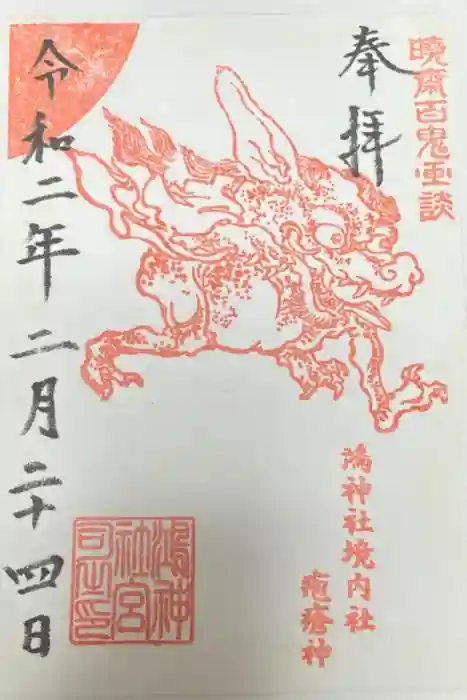 暁斎百鬼画談
奉拝
鴻神社境内社
疱瘡神
鴻神社宮司之印
令和二年二月二十四日